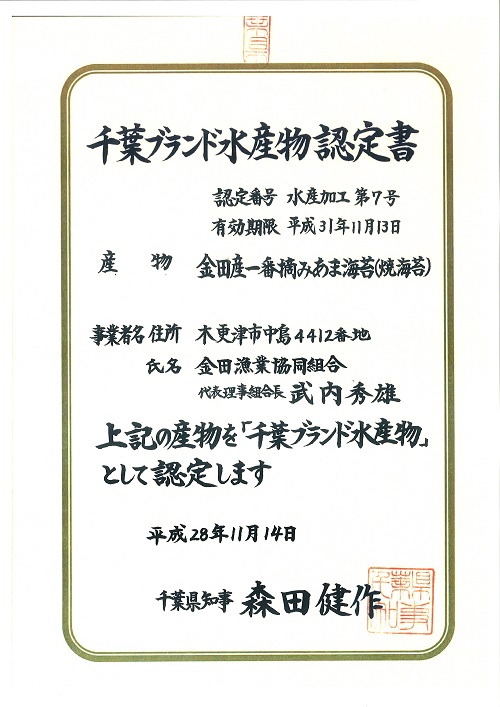 千葉ブランド水産物認定書
認定番号 水産加工第7号
有効期限 平成31年11月13日
産物 金田産一番摘みあま海苔(焼海苔)
事業者名 住所 木更津市中島4412番地
氏名 金田漁業協同組合
代表理事組合長 武内秀雄
上記の産物を「千葉ブランド水産物」
として認定します
平成28年11月14日
千葉県知事 森田健作